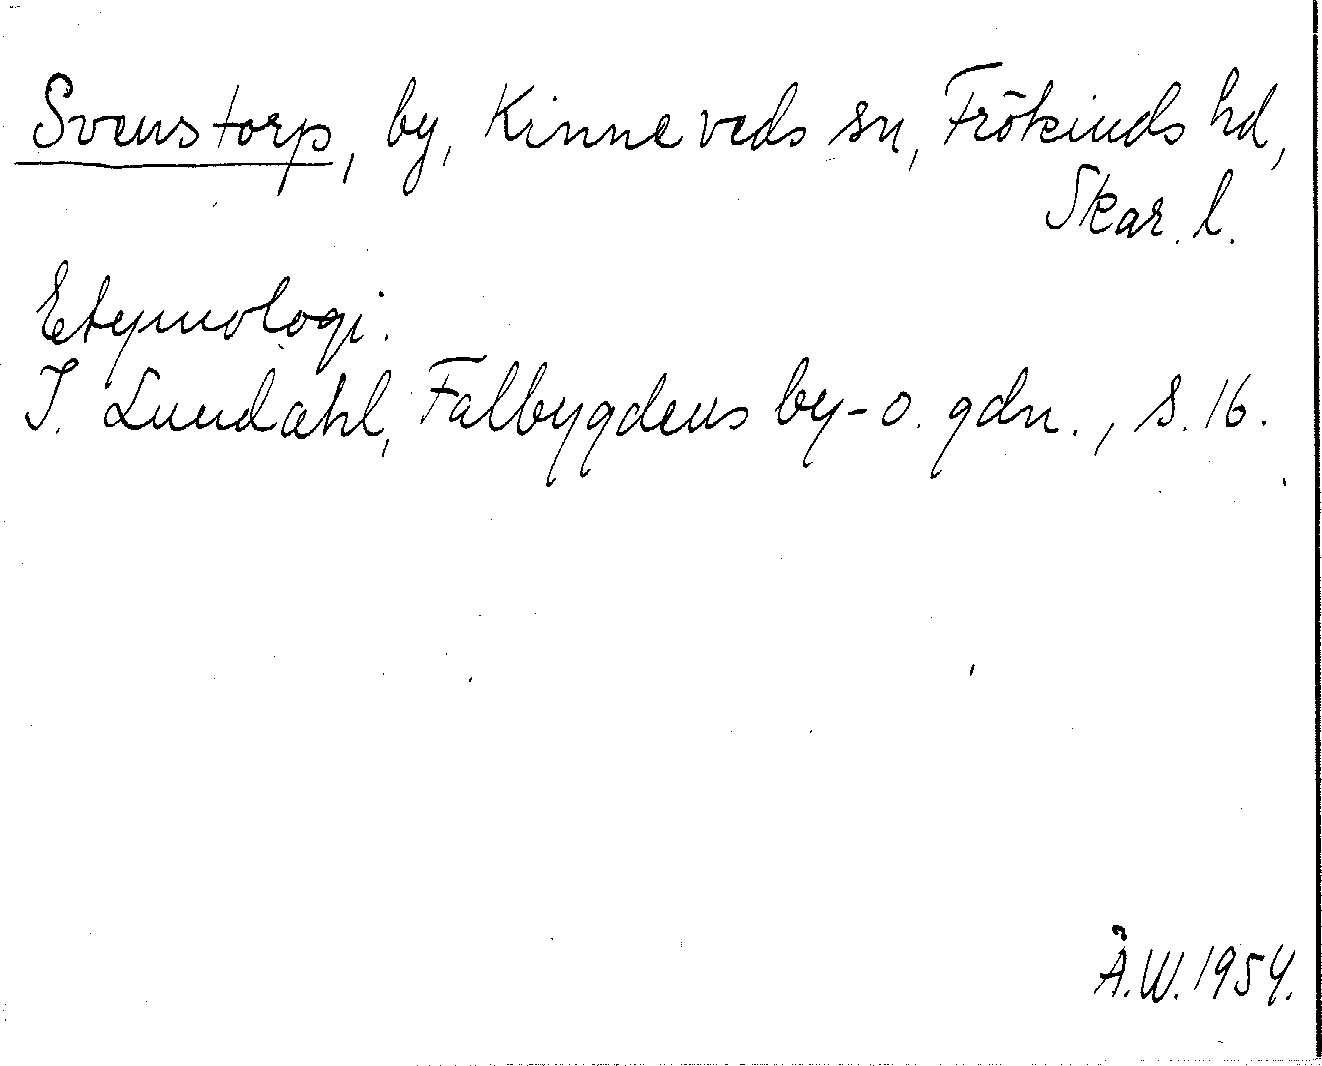 Svenstorp, by, Kinneveds sn, Frökinds hd,
Skar. l.
Etymologi.
I. Lundahl, Falbygdens by- o. gdn., s. 16.
Ä.W. 1954.